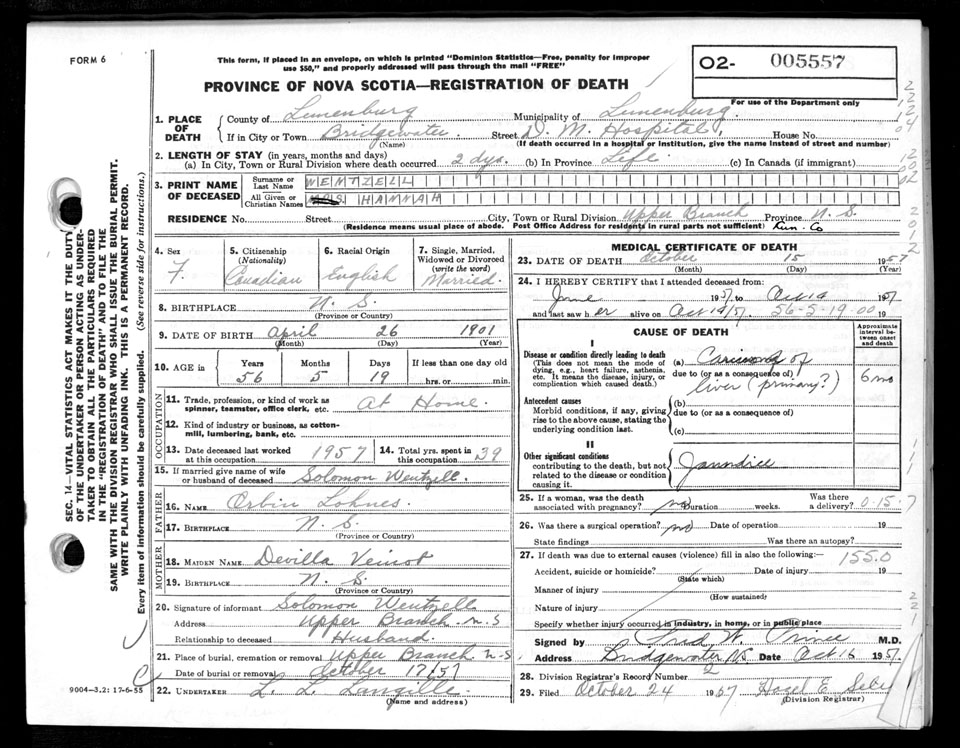 FORM 6
This form, if placed in an envelope, on which is printed "Dominion Statistics—Free, penalty for improper
use $50," and properly addressed will pass through the mail "FREE"
O2- 005557
For use of the Department only
PROVINCE OF NOVA SCOTIA—REGISTRATION OF DEATH
1. PLACE OF DEATH
County of Lunenburg Municipality of Lunenburg.
If in City or Town Bridgewater. Street D. M. Hospital, House No.
(Name) (If death occurred in a hospital or institution, give the name instead of street and number)
2. LENGTH OF STAY (in years, months and days)
(a) In City, Town or Rural Division where death occurred 2 dys. (b) In Province Life. (c) In Canada (if immigrant)
3. PRINT NAME OF DECEASED
Surname or Last Name WENTZELL
All Given or Christian Names HANNAH
RESIDENCE No. Street City, Town or Rural Division Upper Branch Province N. S.
(Residence means usual place of abode. Post Office Address for residents in rural parts not sufficient) Lun. Co
4. Sex F.
5. Citizenship (Nationality) Canadian
6. Racial Origin English
7. Single, Married, Widowed or Divorced (write the word) Married.
8. BIRTHPLACE N. S.
(Province or Country)
9. DATE OF BIRTH April 26 1901
(Month) (Day) (Year)
10. AGE in Years 56 Months 5 Days 19 If less than one day old hrs. or min.
OCCUPATION
11. Trade, profession, or kind of work as spinner, teamster, office clerk, etc. At Home.
12. Kind of industry or business, as cotton-mill, lumbering, bank, etc.
13. Date deceased last worked at this occupation 1957 14. Total yrs. spent in this occupation 39
15. If married give name of wife or husband of deceased Solomon Wentzell.
FATHER
16. NAME Orbin Lohnes
17. BIRTHPLACE N. S.
(Province or Country)
MOTHER
18. MAIDEN NAME Devilla Veinot
19. BIRTHPLACE N. S.
(Province or Country)
20. Signature of informant Solomon Wentzell
Address Upper Branch. N.S
Relationship to deceased Husband.
21. Place of burial, cremation or removal Upper Branch N-S
Date of burial or removal October 17/57
22. UNDERTAKER L. L. Langille.
(Name and address)
9004-3.2: 17-6-55
MEDICAL CERTIFICATE OF DEATH
23. DATE OF DEATH October 15 1957
(Month) (Day) (Year)
24. I HEREBY CERTIFY that I attended deceased from:
June 1957 to Oct 19 1957
and last saw her alive on Oct 14/57. 56-5-19.00 19
CAUSE OF DEATH
Approximate interval between onset and death
I
Disease or condition directly leading to death
(This does not mean the mode of dying, e.g., heart failure, asthenia, etc. It means the disease, injury, or complication which caused death.)
(a) Carcinoma of
due to (or as a consequence of)
liver (primary?) 6 mo
Antecedent causes
Morbid conditions, if any, giving rise to the above cause, stating the underlying condition last.
(b)
due to (or as a consequence of)
(c)
II
Other significant conditions
contributing to the death, but not related to the disease or condition causing it.
Jaundice
25. If a woman, was the death associated with pregnancy? no Duration weeks. Was there a delivery? 0-15-7
26. Was there a surgical operation? no Date of operation 19
State findings Was there an autopsy?
27. If death was due to external causes (violence) fill in also the following:— 155.0
Accident, suicide or homicide? Date of injury 19
(State which)
Manner of injury
(How sustained)
Nature of injury
Specify whether injury occurred in industry, in home, or in public place
Signed by Fred W. Prince M.D.
Address Bridgewater NS Date Oct 16 1957.
28. Division Registrar's Record Number 2
29. Filed October 24 1957 Hazel E.
(Division Registrar)
SEC. 14—VITAL STATISTICS ACT MAKES IT THE DUTY
OF THE UNDERTAKER OR PERSON ACTING AS UNDER-
TAKER TO OBTAIN ALL THE PARTICULARS REQUIRED
IN THE "REGISTRATION OF DEATH" AND TO FILE THE
SAME WITH THE DIVISION REGISTRAR WHO SHALL ISSUE THE BURIAL PERMIT.
WRITE PLAINLY WITH UNFADING INK. THIS IS A PERMANENT RECORD.
Every item of information should be carefully supplied. (See reverse side for instructions.)